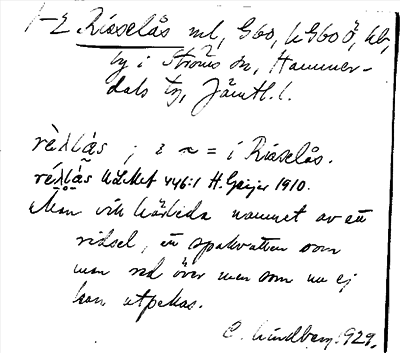 1-2 Risselås ml, G60, h G60 Ö, hb,
by i Ströms sn, Hammer-
dals tg, Jämtl. l.
rèλlás ; i ~ = i Risselås.
réλlås ULMA 446:1 H. Geijer 1910.
Man vill härleda namnet av en
ridsel, en spakvatten som
man red över men som nu ej
kan utpekas.
C. Lindberg 1929.